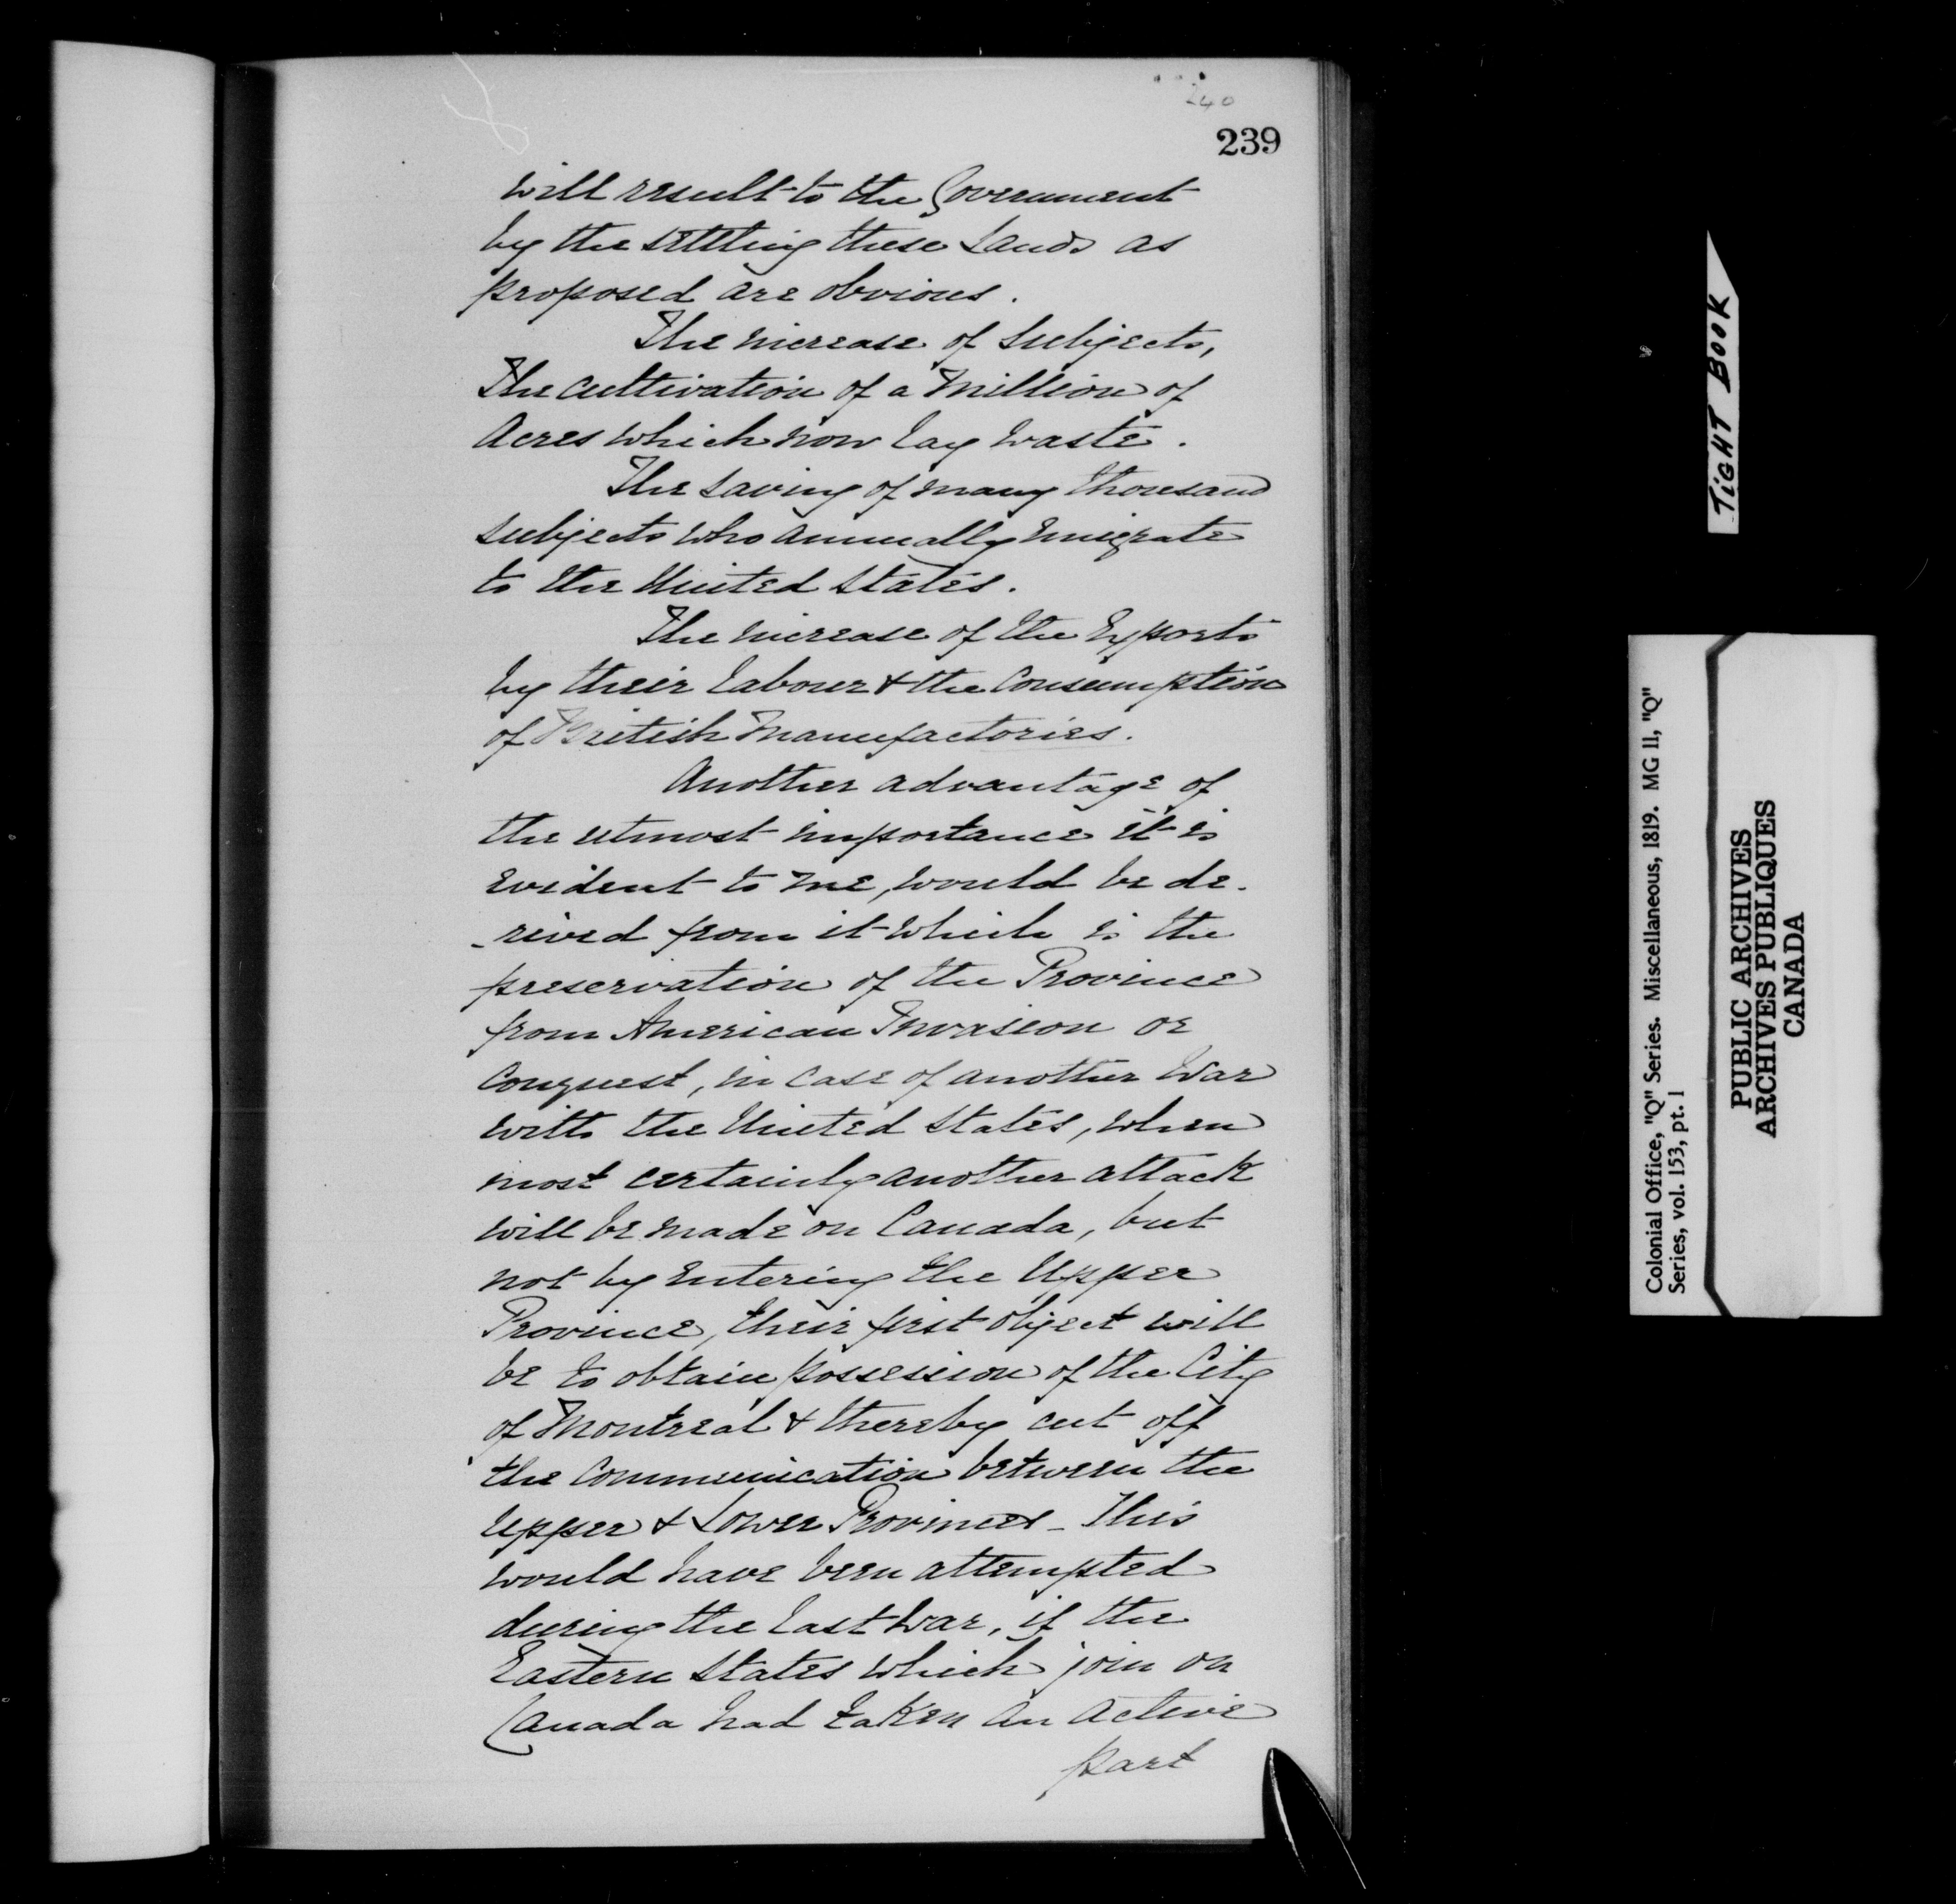 240
239
will result to the Government
by the settling these Lands as
proposed are obvious.
The increase of Subjects,
The Cultivation of a Million of
Acres which now lay waste.
The saving of many thousand
subjects who annually emigrate
to the United States.
The increase of the Exports
by their labour & the Consumption
of British Manufactories.
Another advantage of
the utmost importance it is
evident to me, would be de-
-rived from it which is the
preservation of the Province
from American Invasion or
Conquest, in case of another War
with the United States, when
most certainly another attack
will be made on Canada, but
not by entering the Upper
Province, their first object will
be to obtain possession of the City
of Montreal & thereby cut off
the Communication between the
Upper & Lower Provinces - This
would have been attempted
during the last War, if the
Eastern States which join on
Canada had taken an active
part
TIGHT BOOK
Colonial Office, "Q" Series. Miscellaneous, 1819. MG 11, "Q"
Series, vol. 153, pt. 1
PUBLIC ARCHIVES
ARCHIVES PUBLIQUES
CANADA